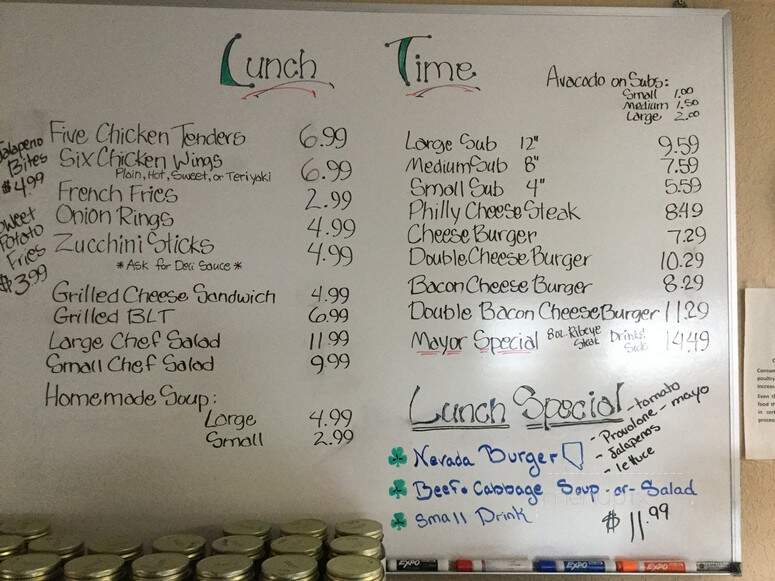 Lunch Time
Avacado on Subs:
Small 1.00
Medium 1.50
Large 2.00
Jalapeno
Bites
$4.99
Sweet
Potato
Fries
$3.99
Five Chicken Tenders 6.99
Six Chicken Wings 6.99
Plain, Hot, Sweet, or Teriyaki
French Fries 2.99
Onion Rings 4.99
Zucchini Sticks 4.99
*Ask for Deli Sauce*
Grilled Cheese Sandwich 4.99
Grilled BLT 6.99
Large Chef Salad 11.99
Small Chef Salad 9.99
Homemade Soup:
Large 4.99
Small 2.99
Large Sub 12" 9.59
Medium Sub 8" 7.59
Small Sub 4" 5.59
Philly Cheese Steak 8.49
Cheese Burger 7.29
Double Cheese Burger 10.29
Bacon Cheese Burger 8.29
Double Bacon Cheese Burger 11.29
Mayor Special 8oz. Ribeye Steak Drink & 14.49
Lunch Special
- tomato
- Provalone - mayo
- Jalapenos
- lettuce
Nevada Burger
Beef & Cabbage Soup -or- Salad
Small Drink $11.99
EXPO
EXPO
EXPO